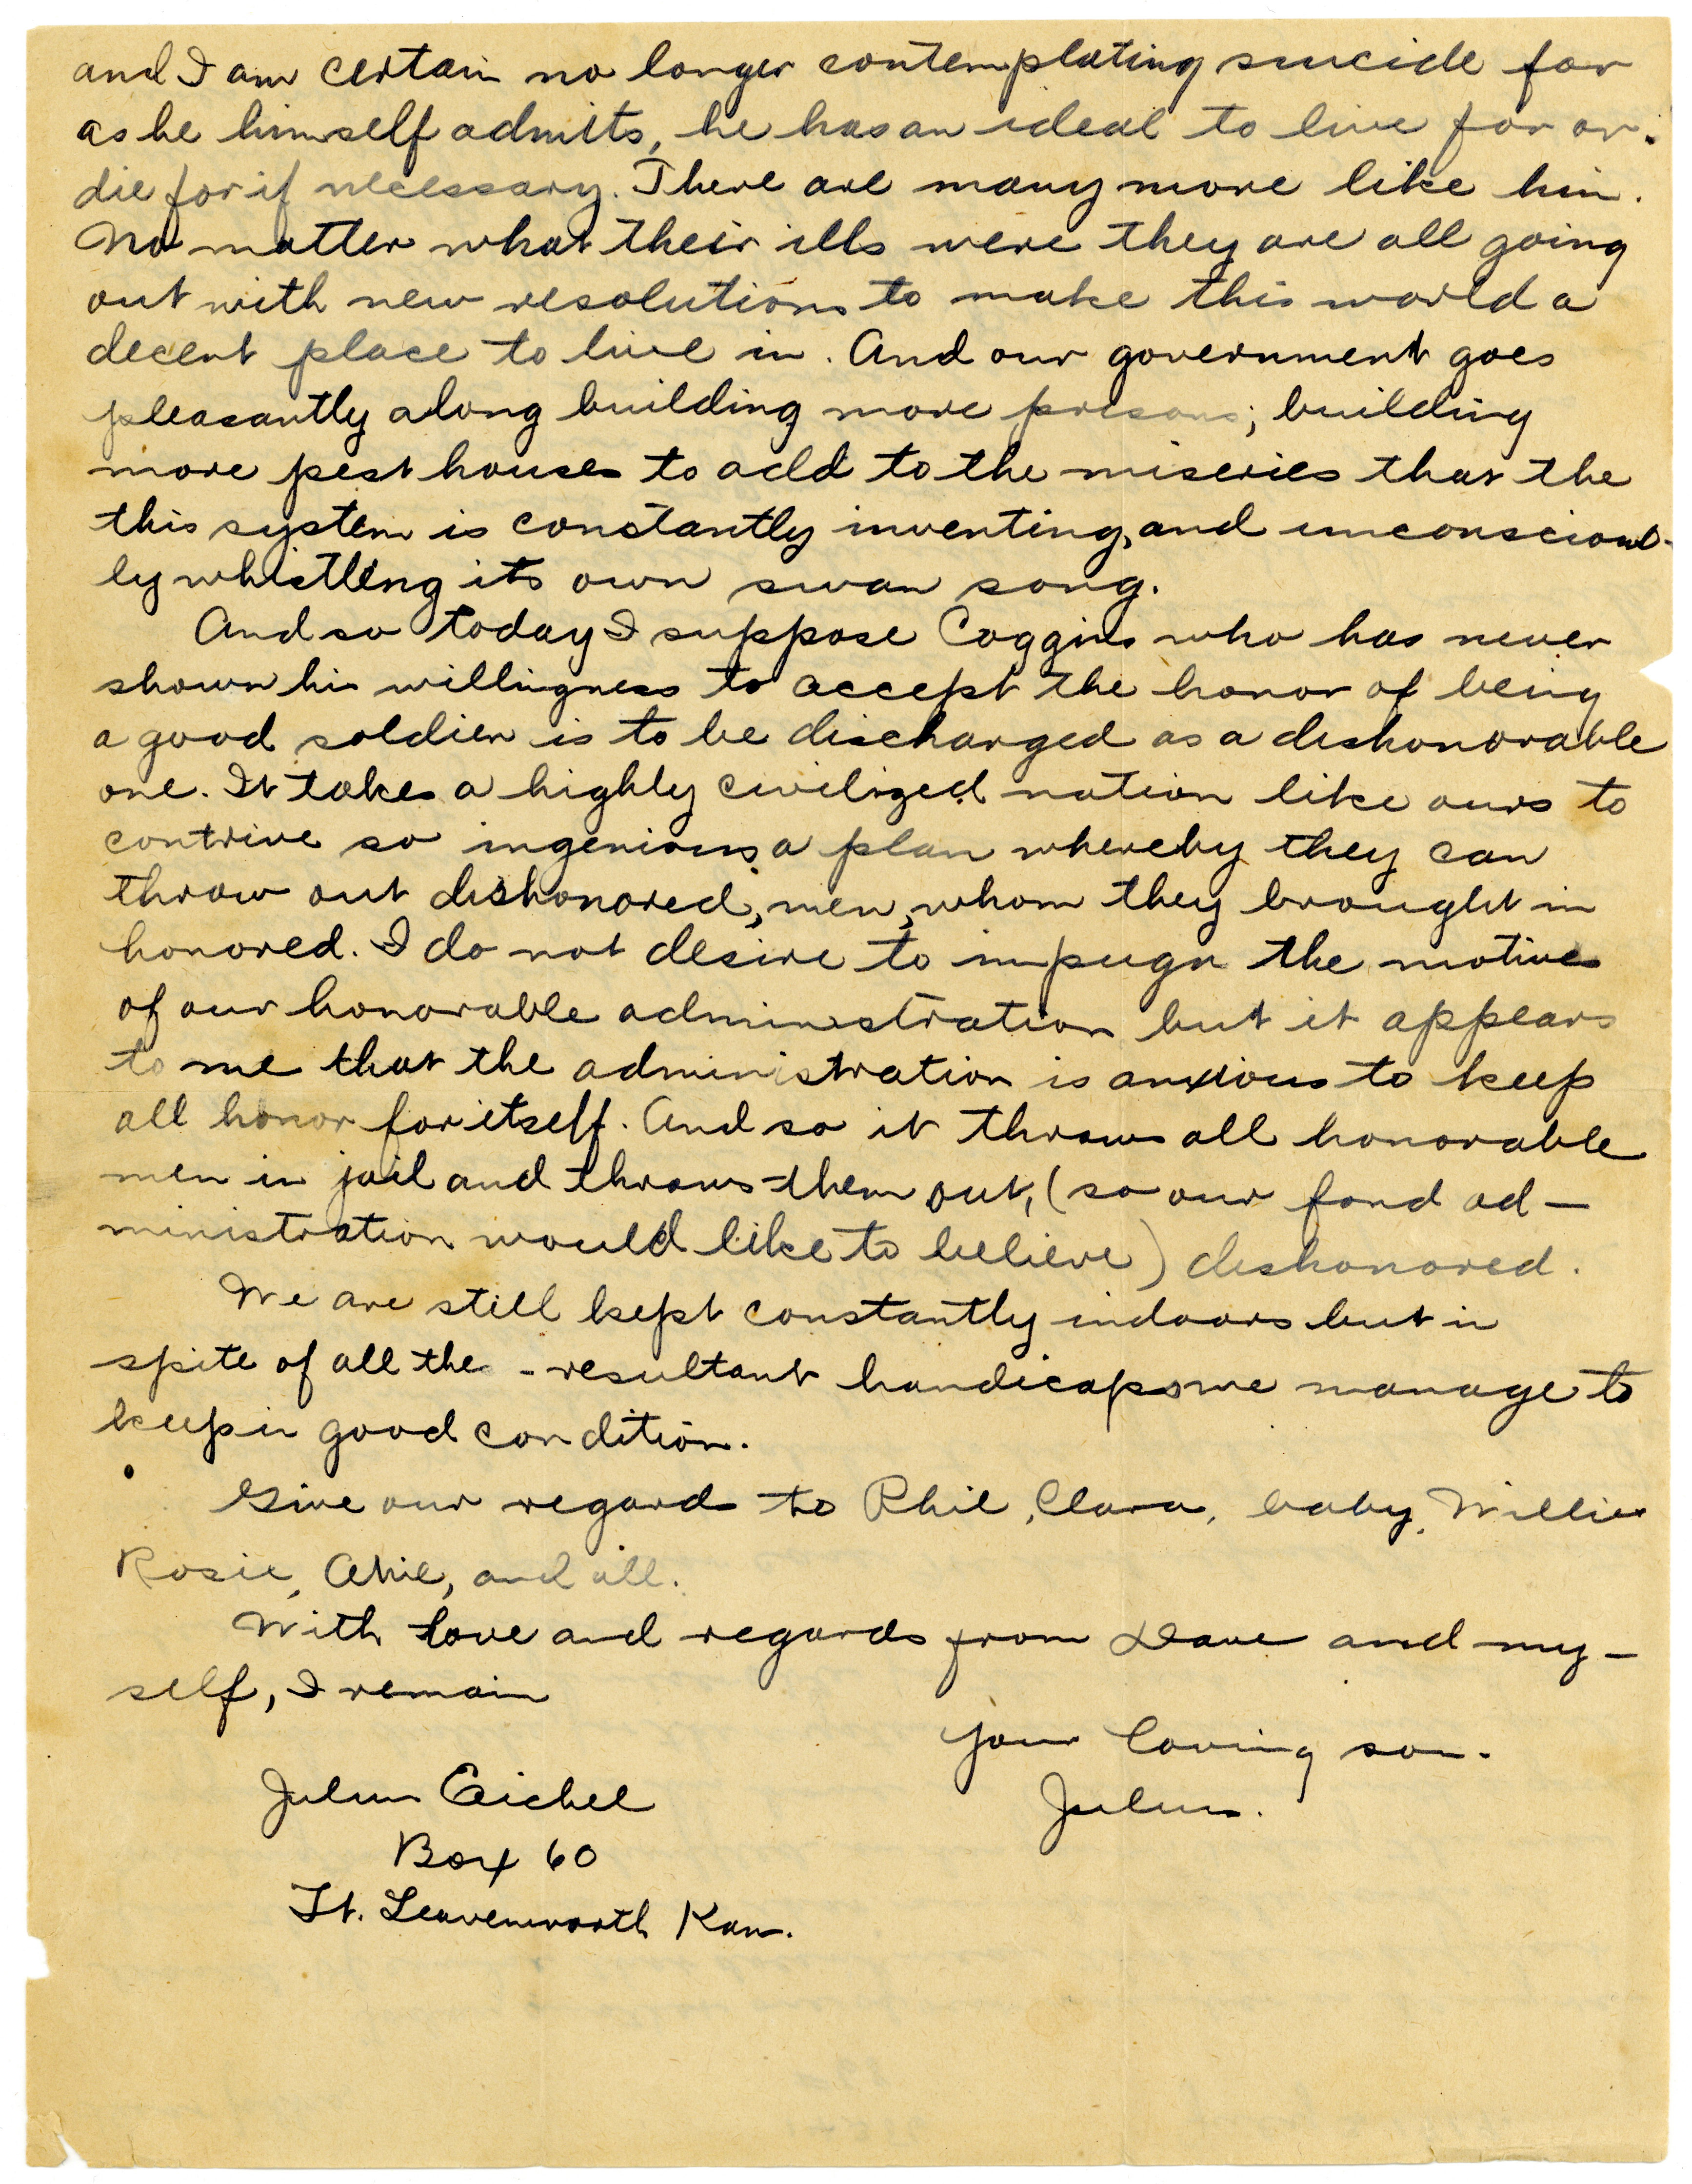 and I am certain no longer contemplating suicide for
as he himself admits, he has an ideal to live for or
die for if necessary. There are many more like him.
No matter what their ills were they are all going
out with new resolutions to make this world a
decent place to live in. And our government goes
pleasantly along building more prisons; building
more pest houses to add to the miseries that the
this system is constantly inventing, and unconscious-
ly whistling its own swan song.
And so today I suppose Coggins who has never
shown his willingness to accept the honor of being
a good soldier is to be discharged as a dishonorable
one. It takes a highly civilized nation like ours to
contrive so ingenious a plan whereby they can
throw out dishonored, men, whom they brought in
honored. I do not desire to impugn the motives
of our honorable administration but it appears
to me that the administration is anxious to keep
all honor for itself. And so it throws all honorable
men in jail and throws them out, (so our fond ad-
ministration would like to believe) dishonored.
We are still kept constantly indoors but in
spite of all the - resultant handicaps we manage to
keep in good condition.
Give our regards to Phil, Clara, baby, Willie
Rosie, Abie, and all.
With love and regards from Dave and my-
self, I remain
Your loving son.
Julius.
Julius Eichel
Box 60
Ft. Leavenworth Kan.